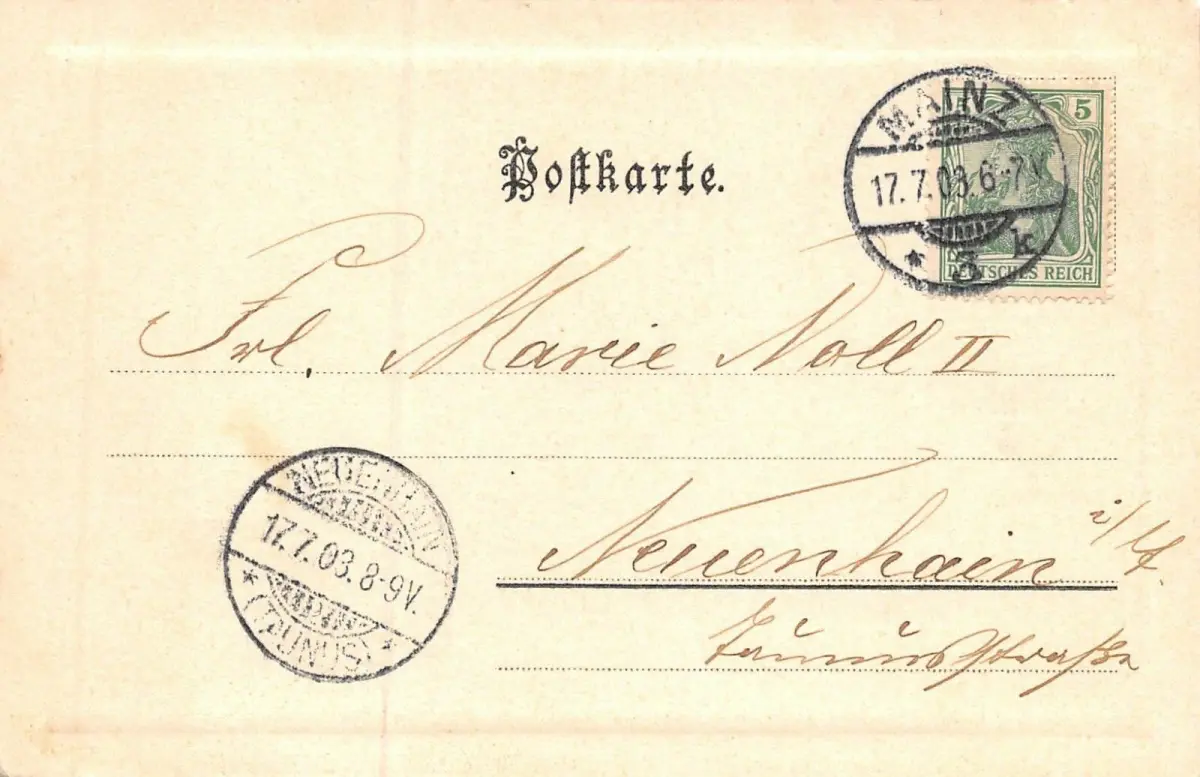 MAINZ
5
17.7.03.6-7V.
* 3 k
DEUTSCHES REICH
Postkarte.
Frl. Marie Noll II
NEUENHAIN
17.7.03.8-9V.
* (TAUNUS) *
Neuenhain i/T.
Taunusstraße